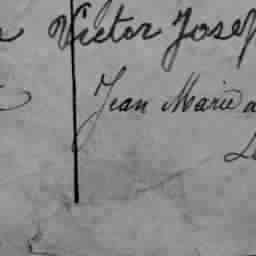 Victor Josep
Jean Marie a